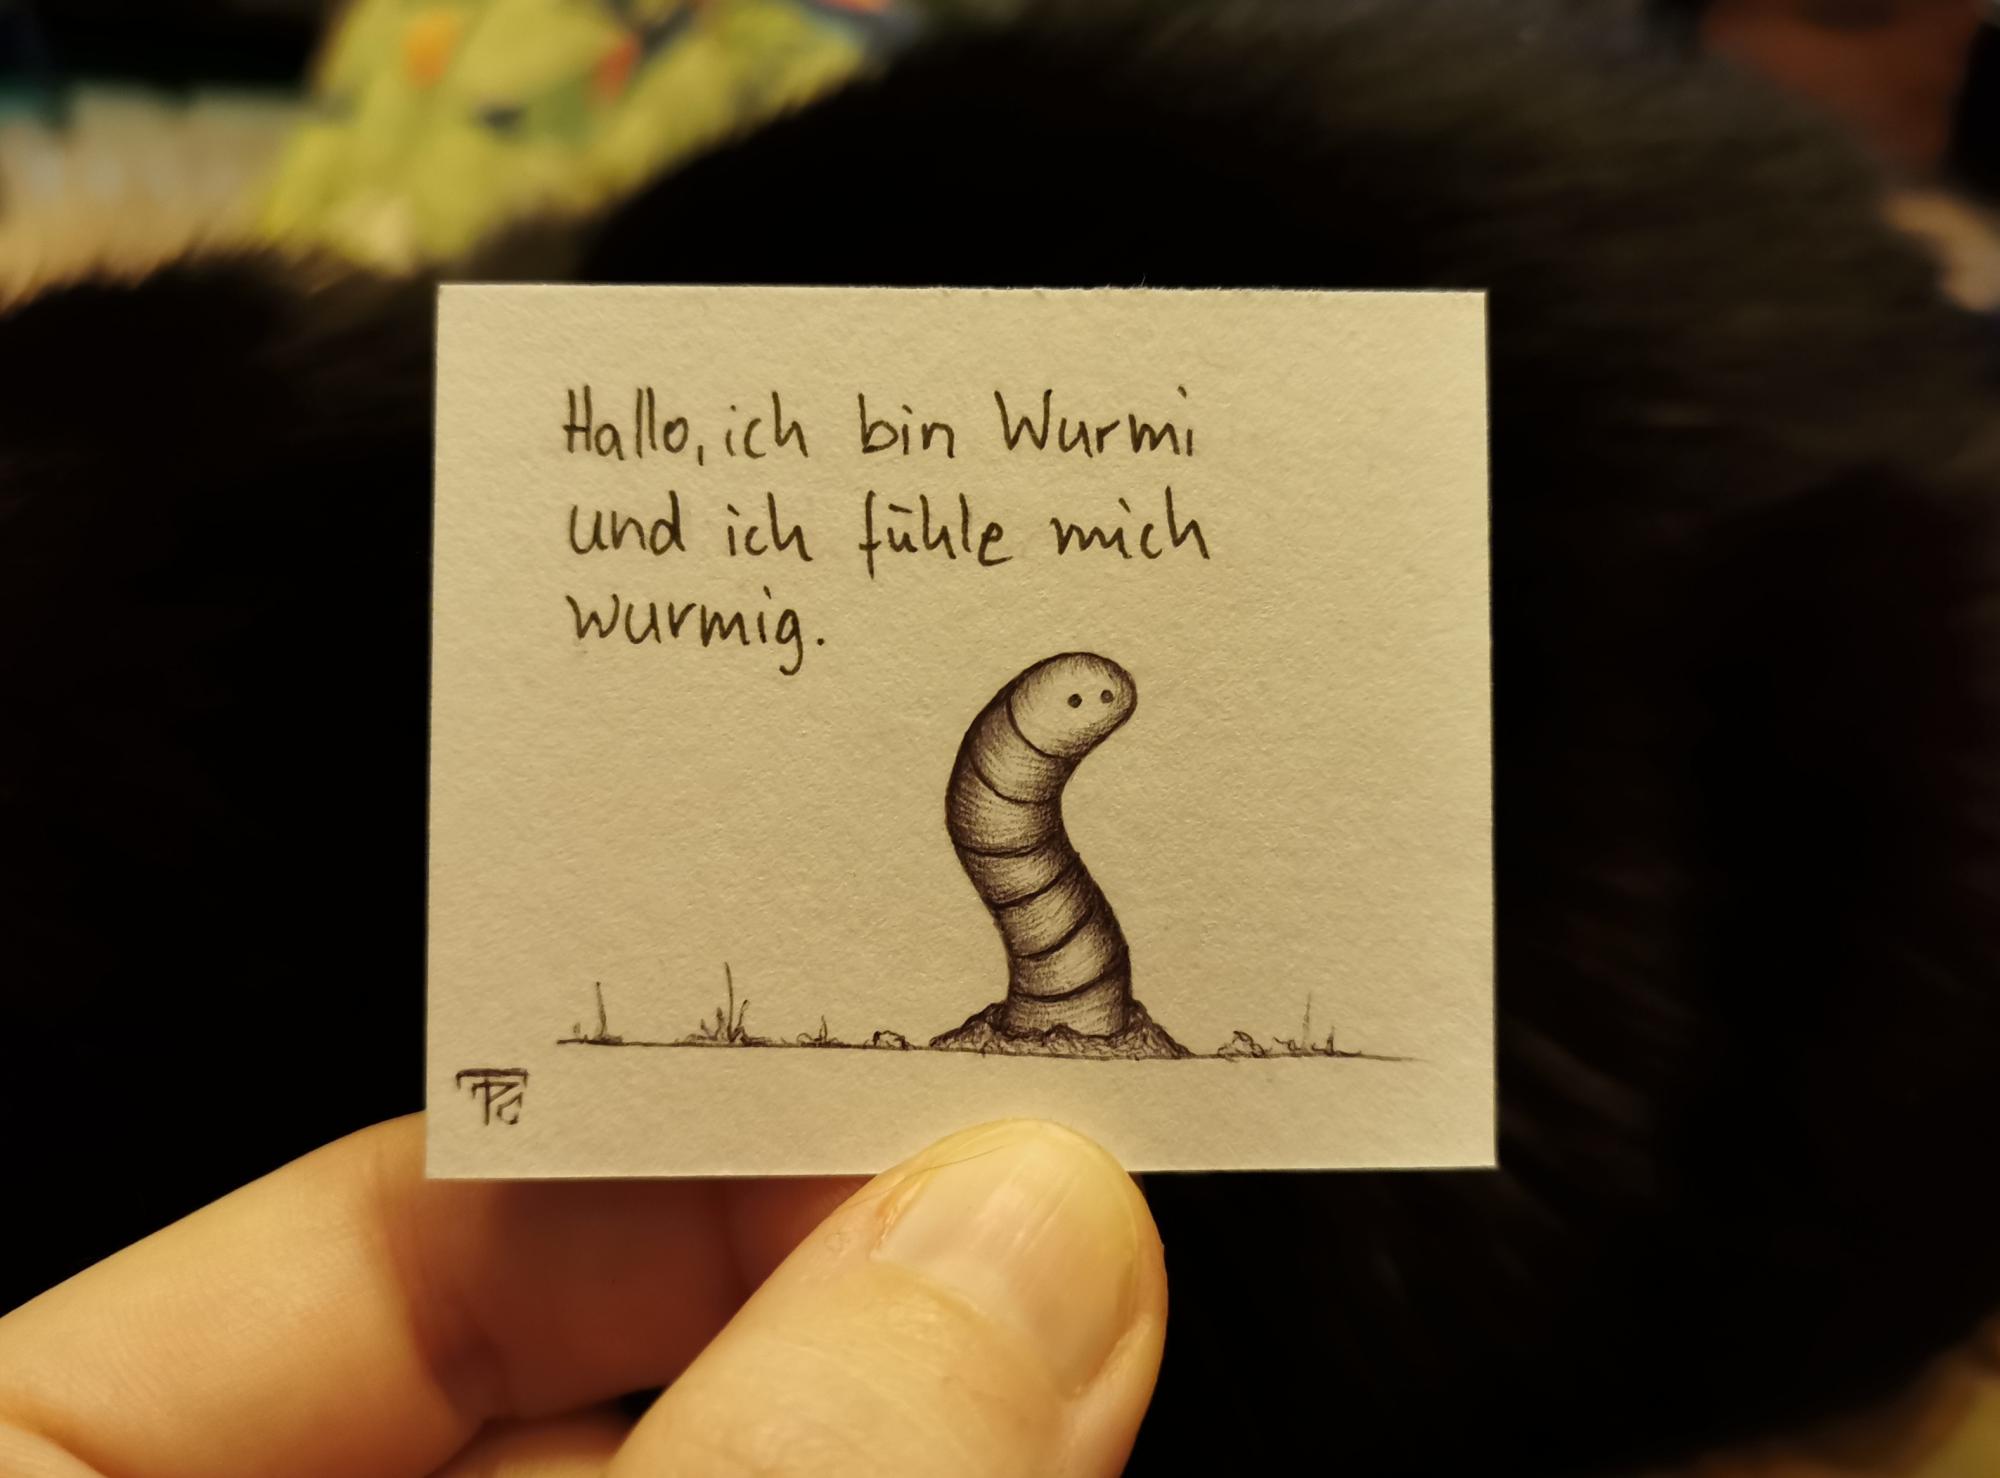 Hallo, ich bin Wurmi
und ich fühle mich
wurmig.